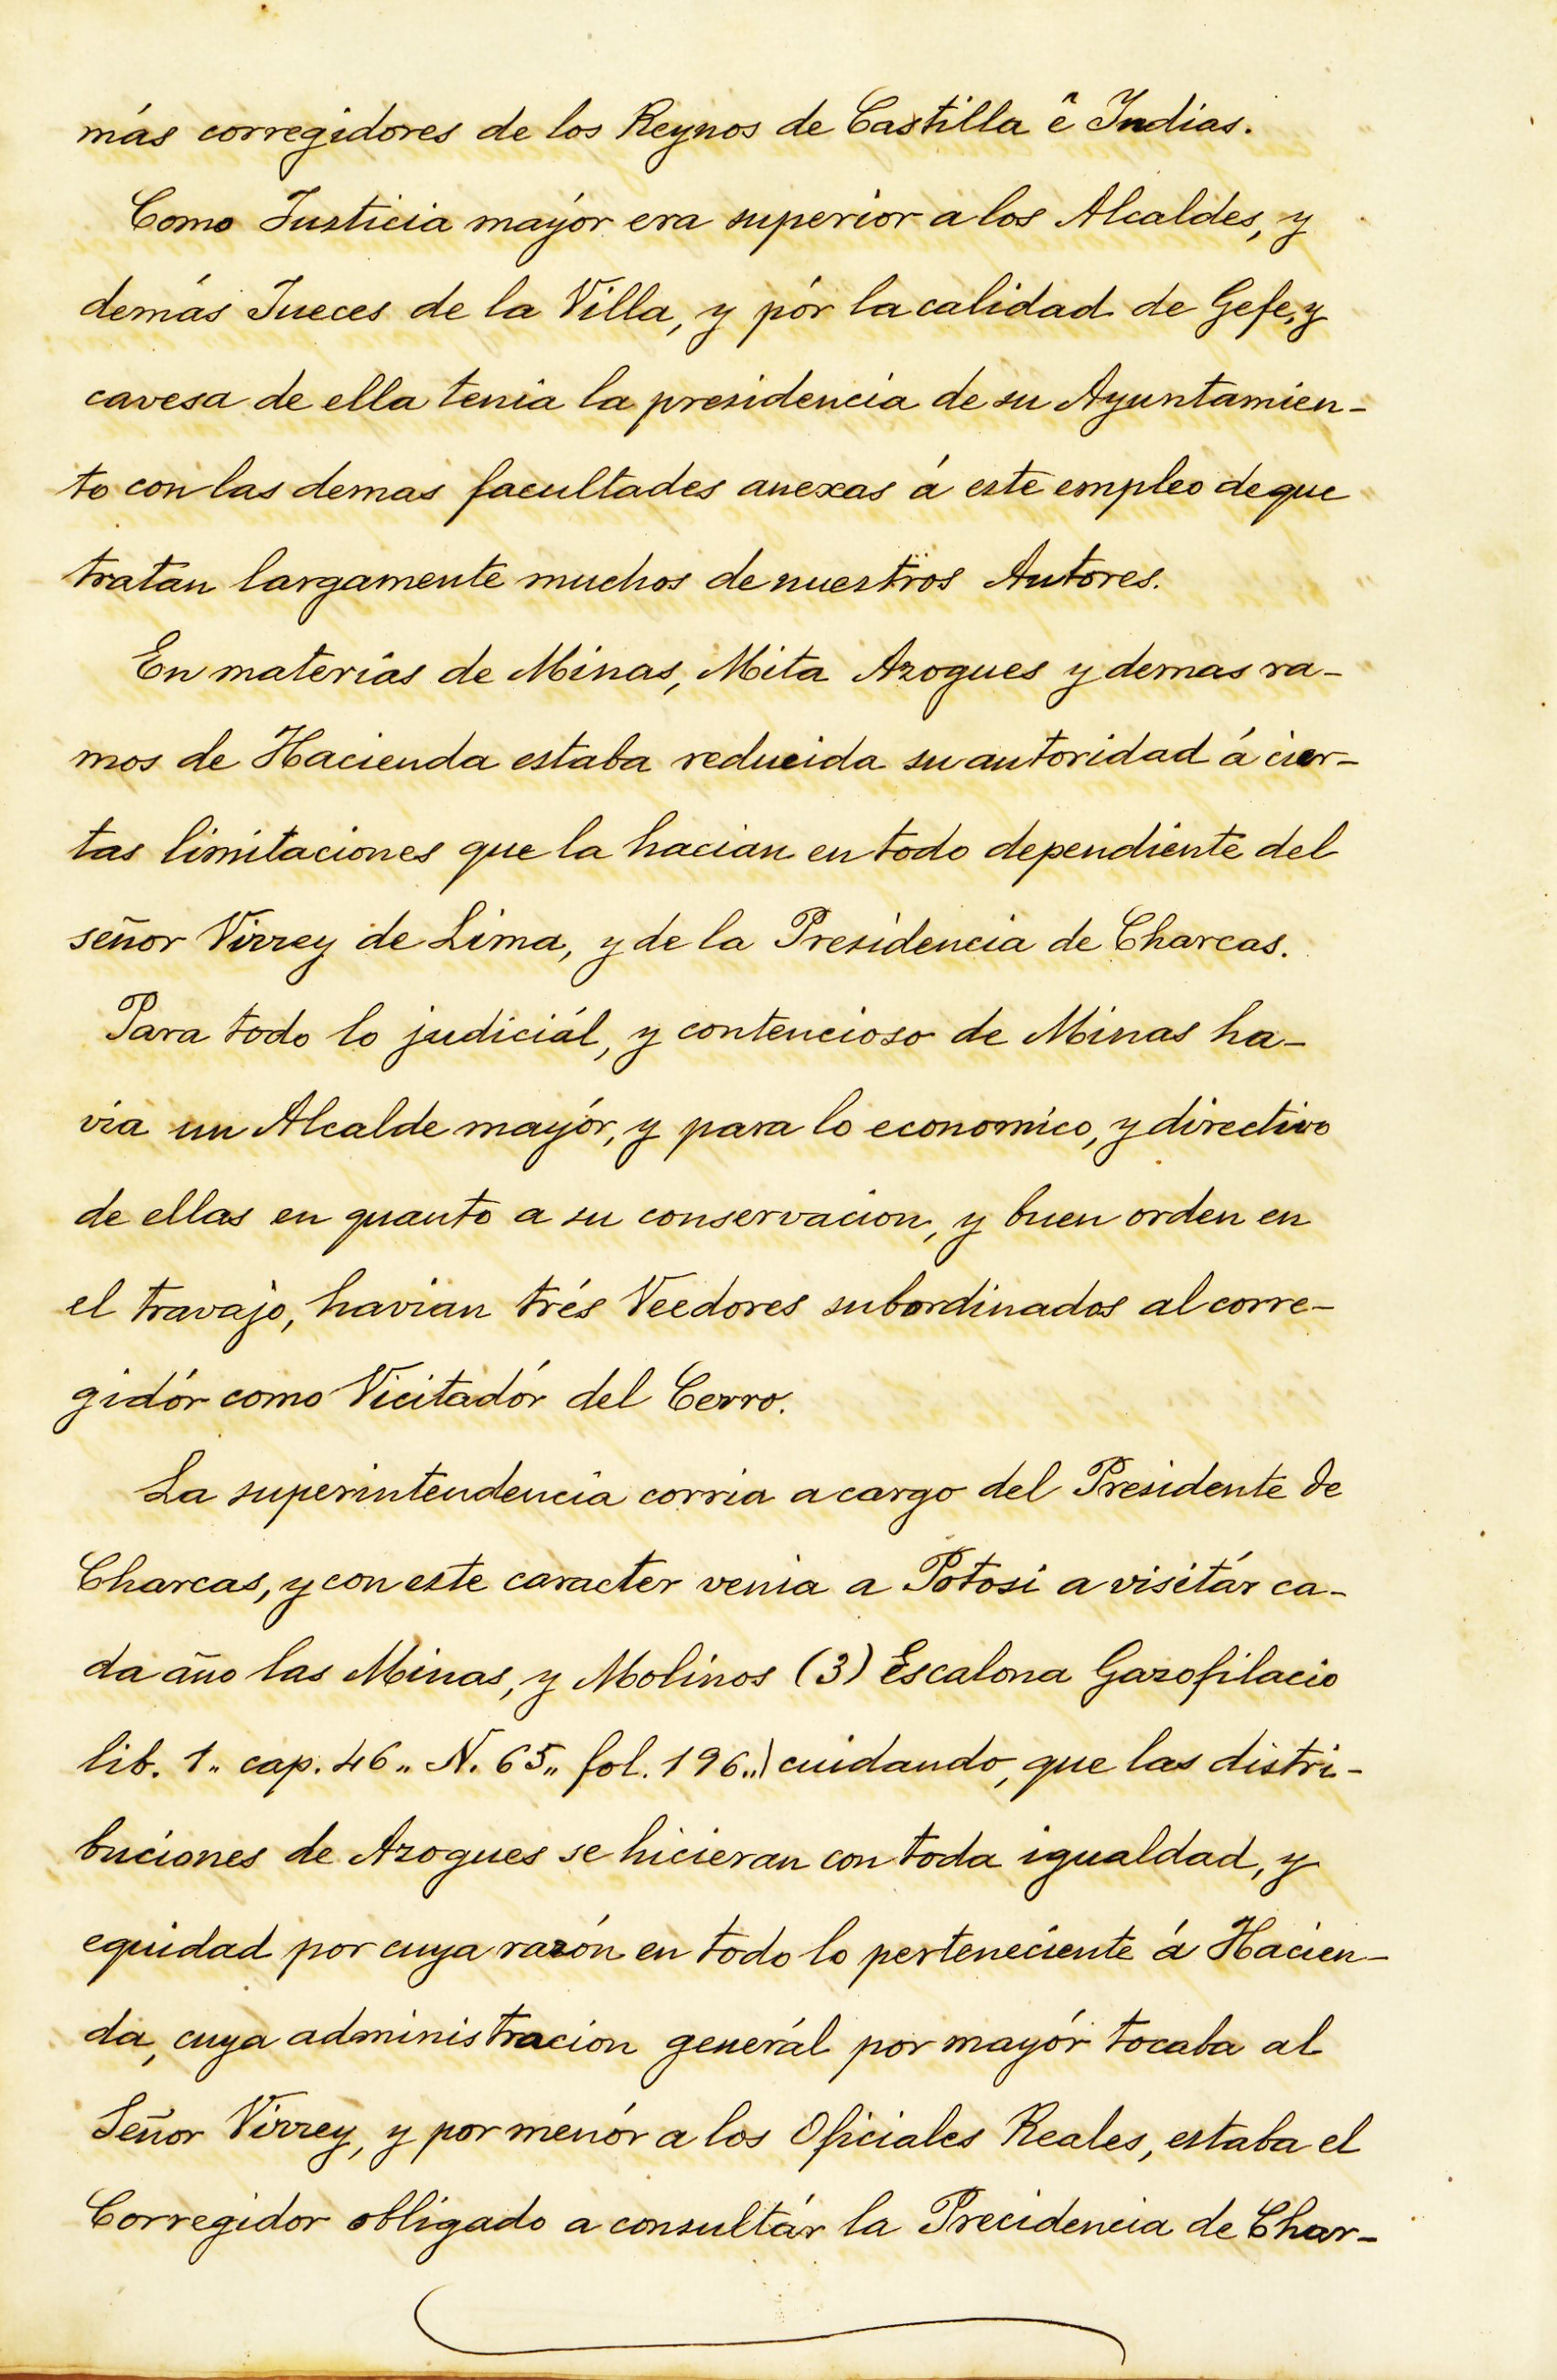 más corregidores de los Reynos de Castilla ê Indias.
Como Justicia mayór era superior a los Alcaldes, y
demás Jueces de la Villa, y pór la calidad de Gefe, y
cavesa de ella tenia la presidencia de su Ayuntamien-
to con las demas facultades anexas á este empleo de que
tratan largamente muchos de nuestros Autores.
En materias de Minas, Mita Azogues y demas ra-
mos de Hacienda estaba reducida su autoridad á cier-
tas limitaciones que la hacian en todo dependiente del
señor Virrey de Lima, y de la Presidencia de Charcas.
Para todo lo judiciál, y contencioso de Minas ha-
via un Alcalde mayór, y para lo economico, y directivo
de ellas en quanto a su conservacion, y buen orden en
el travajo, havian trés Veedores subordinados al corre-
gidór como Vicitadór del Cerro.
La superintendencia corria a cargo del Presidente de
Charcas, y con este caracter venia a Potosi a visitár ca-
da año las Minas, y Molinos (3) Escalona Gazofilacio
lib. 1,, cap. 46,, N. 65,, fol. 196,,) cuidando, que las distri-
buciones de Azogues se hicieran con toda igualdad, y
equidad por cuya razón en todo lo perteneciente á Hacien-
da, cuya administracion generál por mayór tocaba al
Señor Virrey, y por menór a los Oficiales Reales, estaba el
Corregidor obligado a consultár la Precidencia de Char-